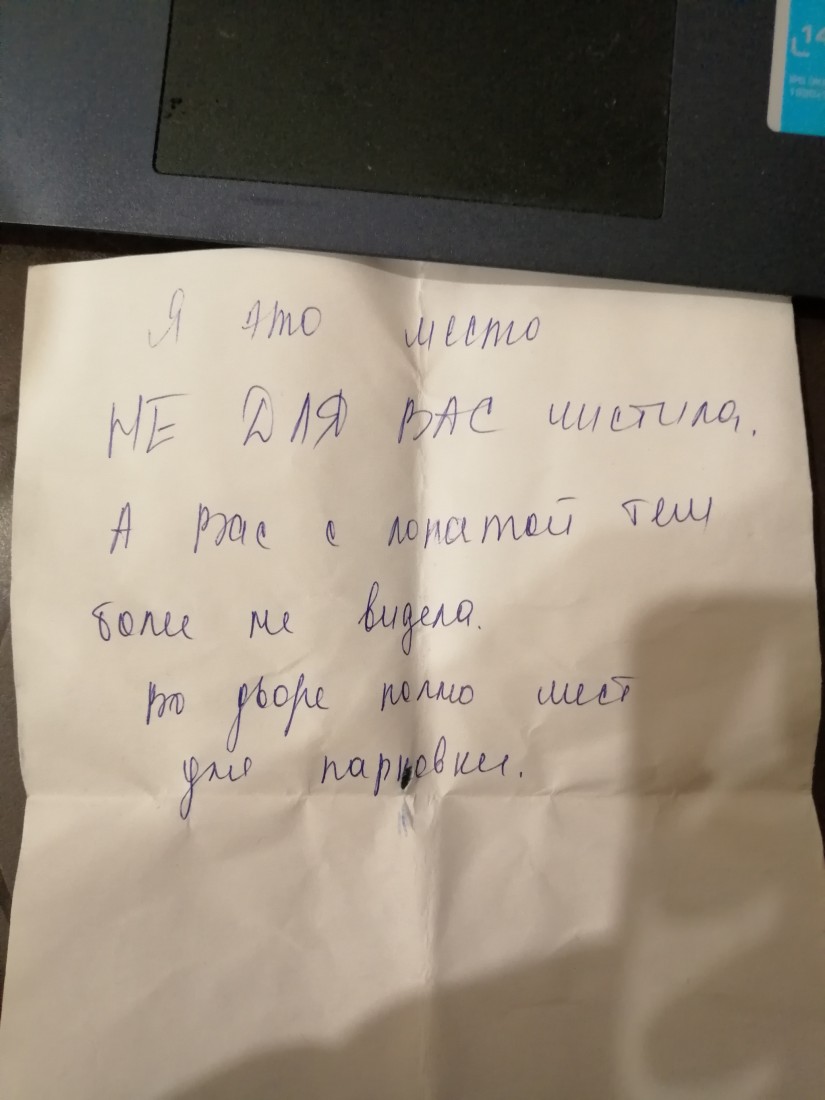 14
Я это место
НЕ ДЛЯ ВАС чистила.
А Вас с лопатой тем
более не видела.
Во дворе полно мест
для парковки.